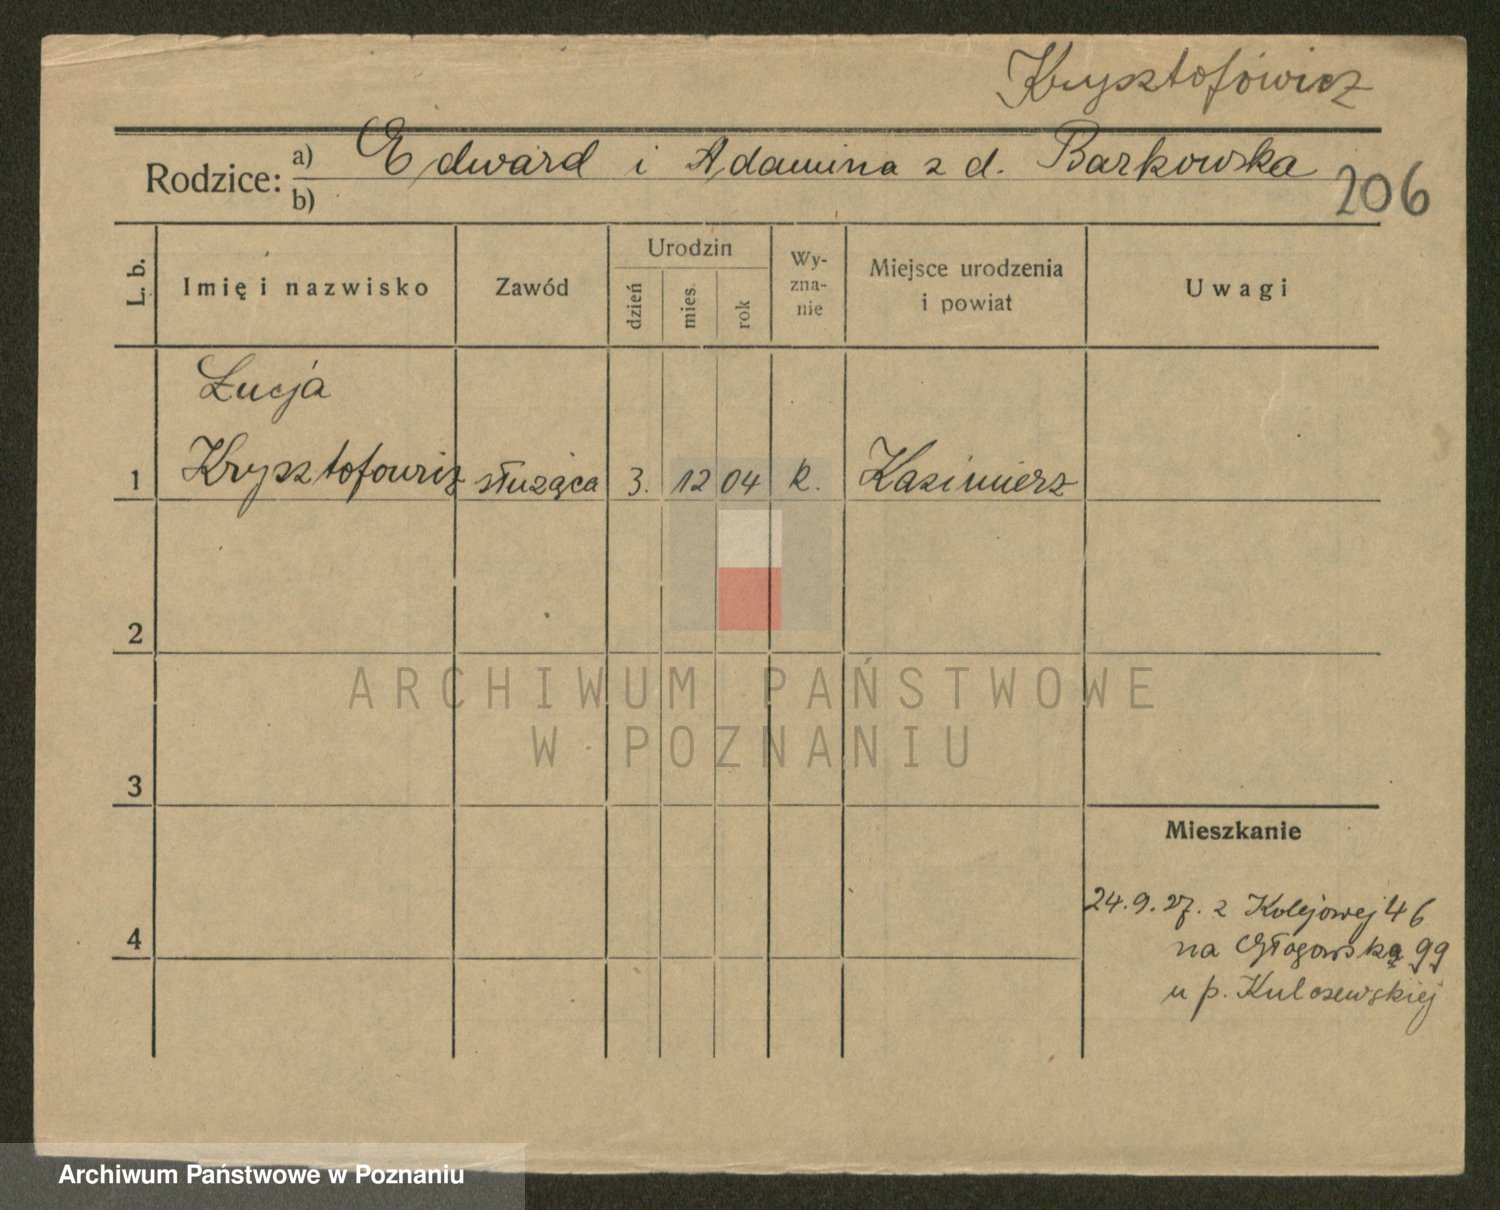 Krysztofowicz
Rodzice: a) Edward i Adamina z d. Barkowska
b)
206
L. b.
Imię i nazwisko
Zawód
Urodzin
dzień
mies.
rok
Wy-
zna-
nie
Miejsce urodzenia
i powiat
Uwagi
Łucja
1 Krysztofowicz służąca 3. 12 04 k. Kazimierz
2
3
4
Mieszkanie
24.9.27. z Kolejowej 46
na Głogowską 99
u p.
ARCHIWUM PAŃSTWOWE
W POZNANIU
Archiwum Państwowe w Poznaniu